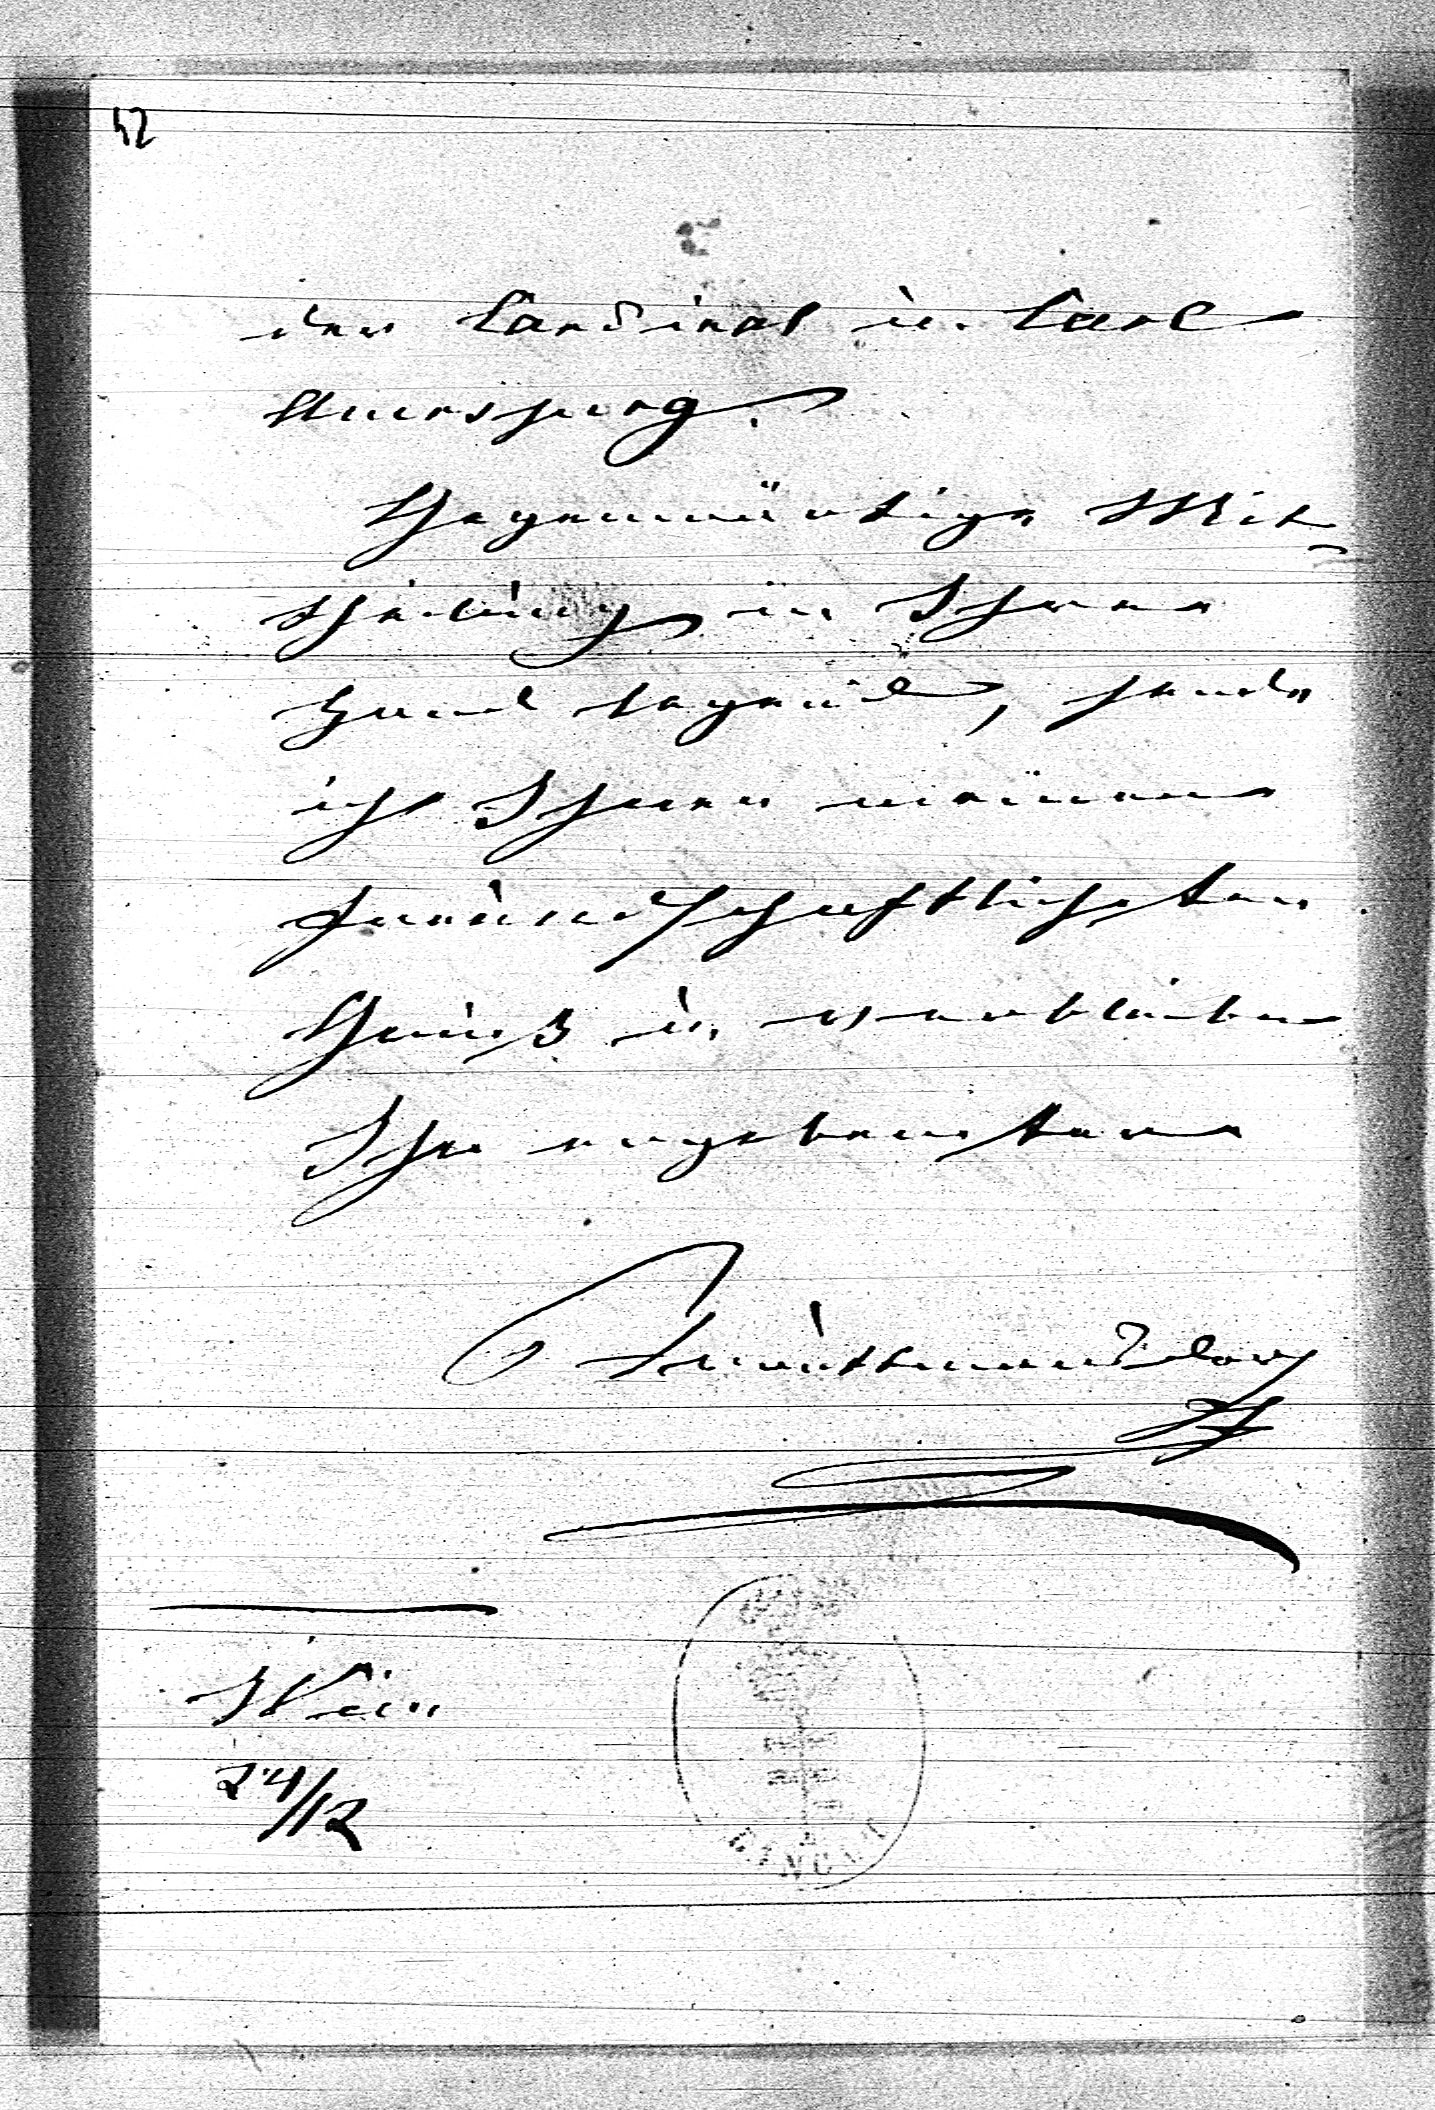 42
der Cardinal u. Carl
Auersperg.
Gegenwärtige Mit-
theilung in Ihre
Hand legend, sende
ich Ihnen meinen
freundschaftlichsten
Gruß u. verbleibe
Ihr ergebenster
Wien
24/12